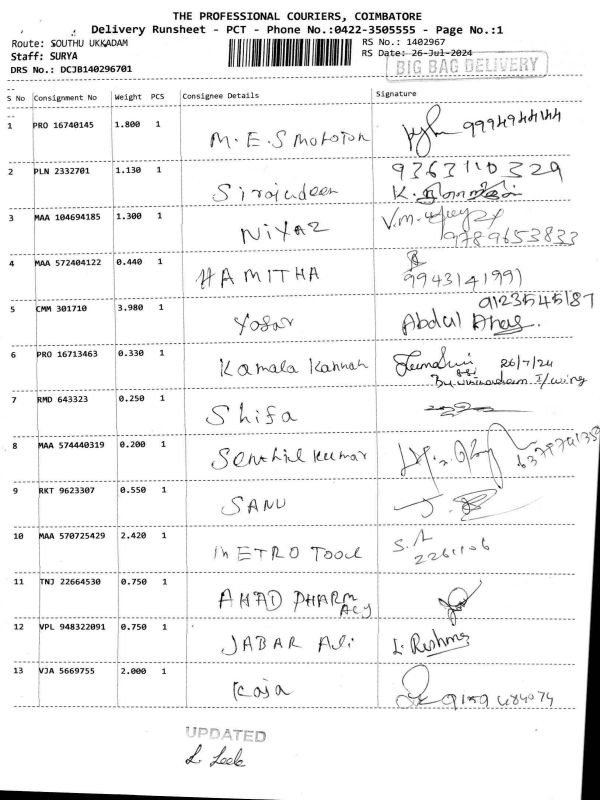 THE PROFESSIONAL COURIERS, COIMBATORE
Delivery Runsheet - PCT - Phone No.:0422-3505555 - Page No.:1
Route: SOUTHU UKKADAM
RS No.: 1402967
Staff: SURYA
RS Date: 26-Jul-2024
DRS No.: DCJB140296701
BIG BAG DELIVERY
S No Consignment No Weight PCS Consignee Details Signature
1 PRO 16740145 1.800 1 M.E.S Mototon
2 PLN 2332701 1.130 1 Sirajudeen 9363110329
3 MAA 104694185 1.300 1 NiYAZ V.M. 9789653833
4 MAA 572404122 0.440 1 HAMITHA 9943141991
5 CMM 301710 3.980 1 Yosar 9123545187
Abdul
6 PRO 16713463 0.330 1 Kamala Kannah 26/7/24
7 RMD 643323 0.250 1 Shifa
8 MAA 574440319 0.200 1 Senthil kumar
9 RKT 9623307 0.550 1 SANU
10 MAA 570725429 2.420 1 METRO Tool S.A
2261106
11 TNJ 22664530 0.750 1 AHAD PHARMACY
12 VPL 948322091 0.750 1 JABAR Ali L. Reshma
13 VJA 5669755 2.000 1 Kaja 9159484074
UPDATED
L. Leela